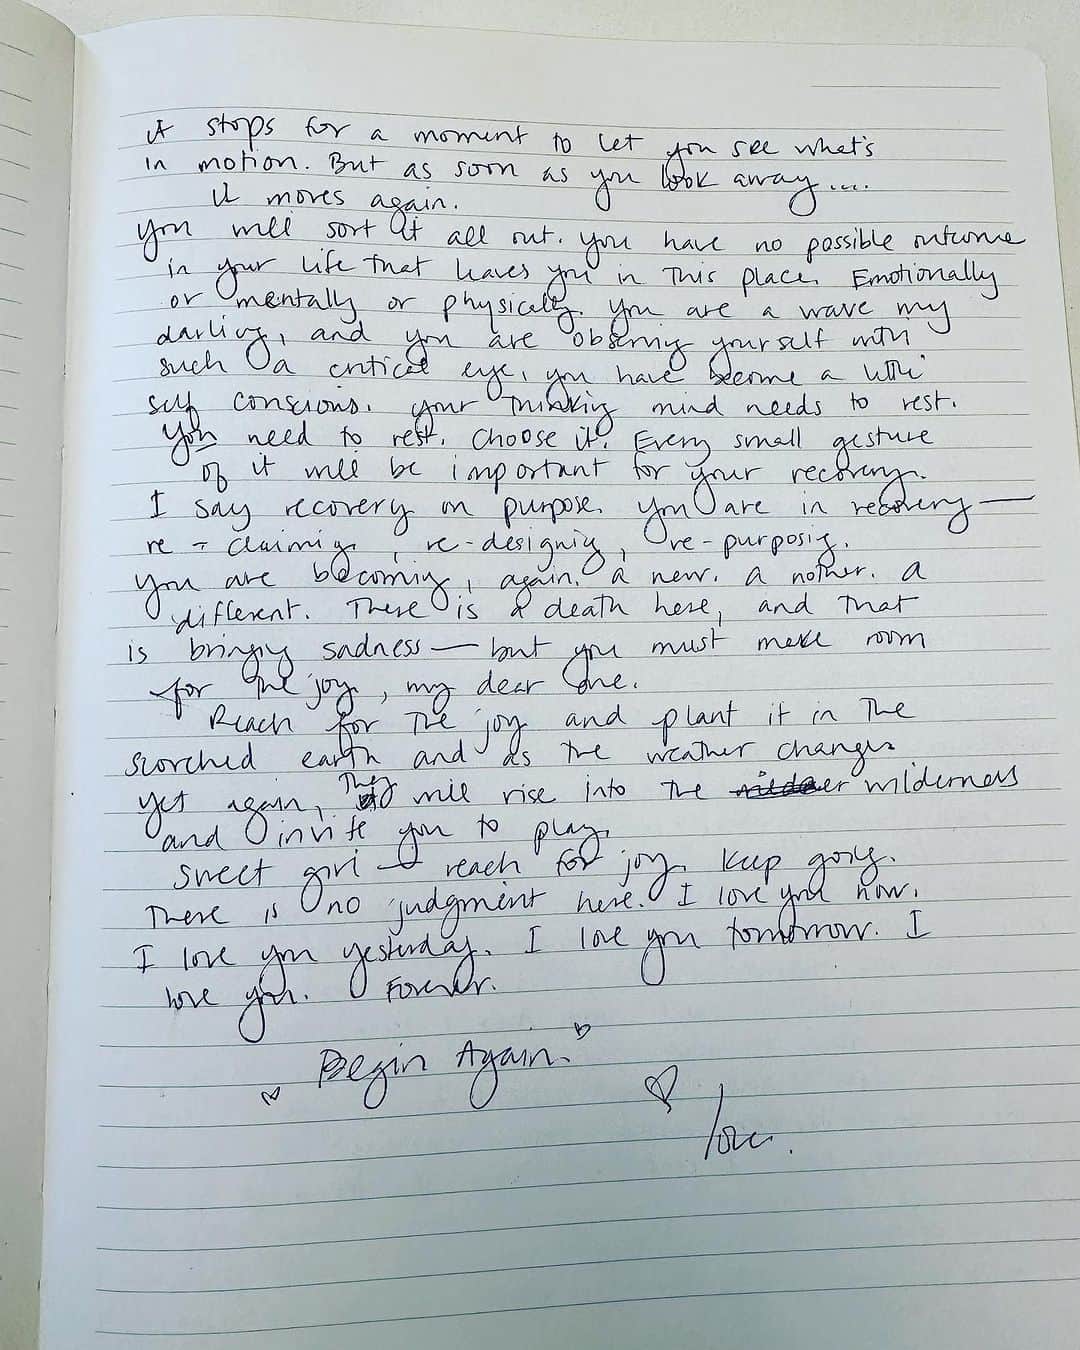 it stops for a moment to let you see what's
in motion. But as soon as you look away....
it moves again.
you will sort it all out. you have no possible outcome
in your life that leaves you in this place. Emotionally
or mentally or physically. you are a wave my
darling, and you are observing yourself with
such a critical eye, you have become a little
self conscious. your thinking mind needs to rest.
you need to rest. Choose it. Every small gesture
of it will be important for your recovery.
I say recovery on purpose. you are in recovery —
re-claiming, re-designing, re-purposing.
you are becoming, again. a new. a nother. a
different. There is a death here, and that
is bringing sadness — but you must make room
for the joy, my dear one.
Reach for the joy and plant it in the
scorched earth and as the weather changes
yet again, they will rise into the wilderness
and invite you to play.
sweet girl — reach for joy. Keep going.
There is no judgment here. I love you now.
I love you yesterday. I love you tomorrow. I
love you. Forever.
Begin Again.
love.